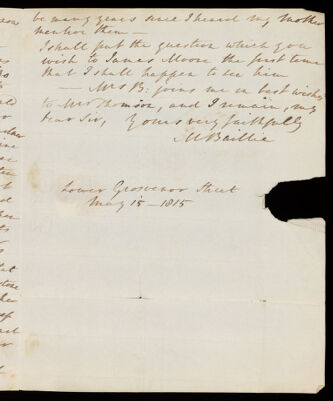 be many years since I heard my Mother
mention them —
I shall put the question which you
wish to James Moore the first time
that I shall happen to see him
— Mrs B: joins me in best wishes
to Mrs Thomson, and I remain, my
dear Sir, Yours very faithfully
M Baillie
Lower Grosvenor Street
May 15 — 1815